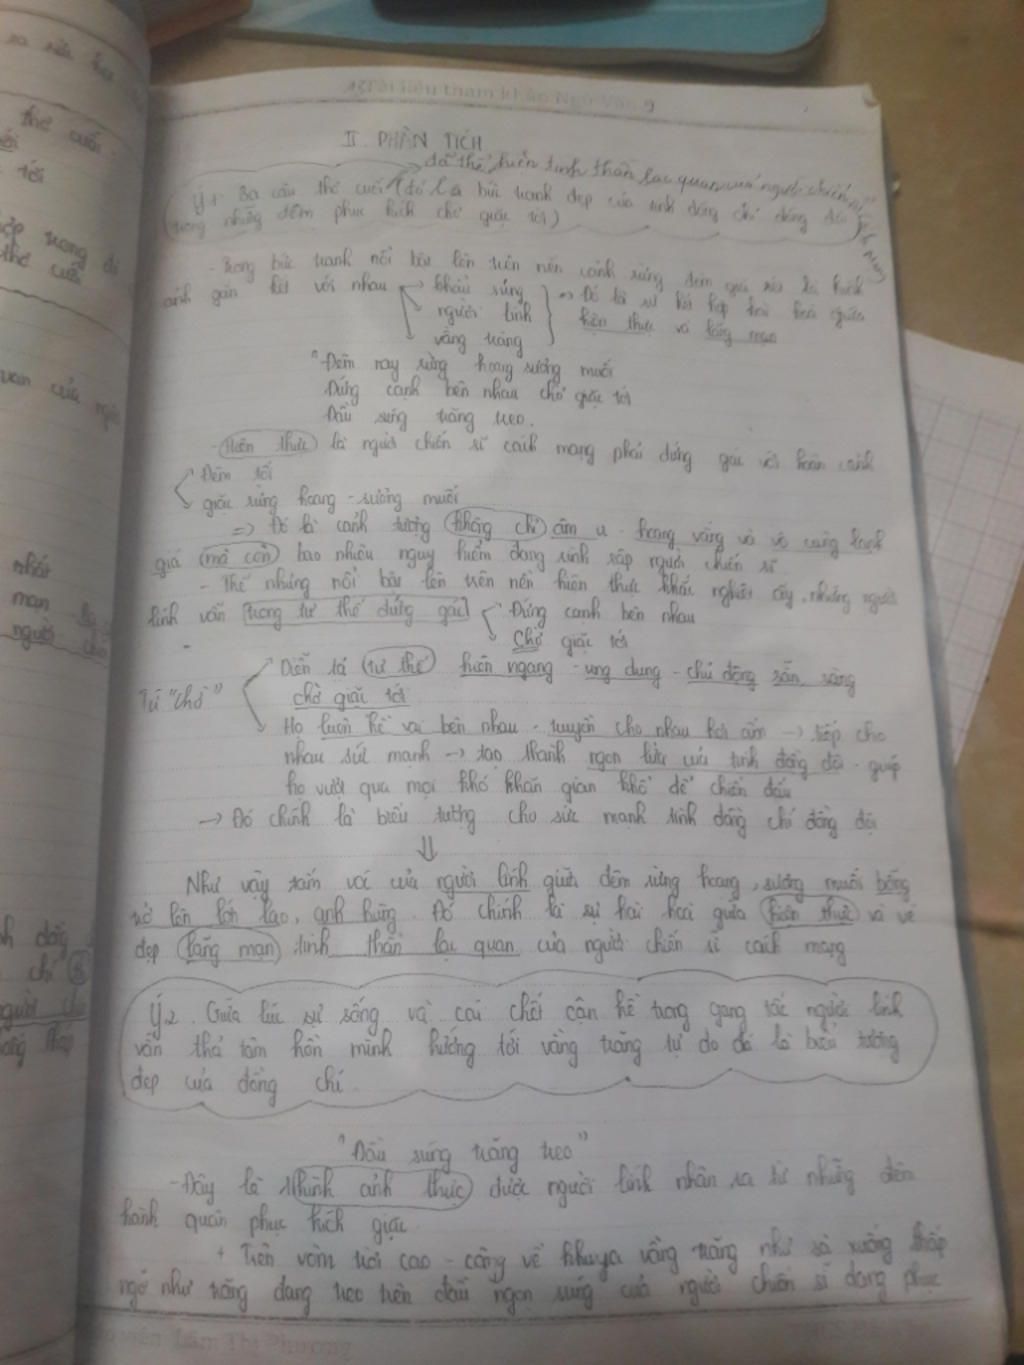 Tài liệu tham khảo Ngữ Văn 9
II PHÂN TÍCH
đã thể hiện tinh thần lạc quan của người chiến sĩ
Ý1: Ba câu thơ cuối (đó là bức tranh đẹp của tình đồng chí đồng đội
trong những đêm phục kích chờ giặc tới)
- Trong bức tranh nổi bật lên trên nền cảnh rừng đêm giá rét là hình
ảnh gắn kết với nhau → khẩu súng } => Đó là sự kết hợp hài hoà giữa
người lính hiện thực và lãng mạn
vầng trăng
"Đêm nay rừng hoang sương muối
Đứng cạnh bên nhau chờ giặc tới
Đầu súng trăng treo.
- Hiện thực là người chiến sĩ cách mạng phải đứng gác với hoàn cảnh
Đêm tối
giữa rừng hoang - sương muối
=> Đó là cảnh tượng không chỉ âm u - hoang vắng và vô cùng lạnh
giá mà còn bao nhiêu nguy hiểm đang rình rập người chiến sĩ
- Thế nhưng nổi bật lên trên nền hiện thực khắc nghiệt ấy, những người
lính vẫn trong tư thế đứng gác Đứng cạnh bên nhau
Chờ giặc tới
Từ "chờ" Diễn tả tư thế hiên ngang - ung dung - chủ động sẵn sàng
chờ giặc tới
Họ luôn kề vai bên nhau - truyền cho nhau hơi ấm → tiếp cho
nhau sức mạnh → tạo thành ngọn lửa của tình đồng đội - giúp
họ vượt qua mọi khó khăn gian khổ để chiến đấu
→ Đó chính là biểu tượng cho sức mạnh tình đồng chí đồng đội
⇓
Như vậy tầm vóc của người lính giữa đêm rừng hoang, sương muối bỗng
trở lên lớn lao, anh hùng. Đó chính là sự hài hoà giữa hiện thực và vẻ
đẹp lãng mạn tinh thần lạc quan của người chiến sĩ cách mạng
Ý2. Giữa lúc sự sống và cái chết cận kề trong gang tấc người lính
vẫn thả tâm hồn mình hướng tới vầng trăng tự do đó là biểu tượng
đẹp của đồng chí
"Đầu súng trăng treo"
- Đây là hình ảnh thực được người lính nhận ra từ những đêm
hành quân phục kích giặc
+ Trên vòm trời cao - càng về khuya vầng trăng như sà xuống thấp
ngỡ như trăng đang treo trên đầu ngọn súng của người chiến sĩ đang phục
Lâm Thị Phương